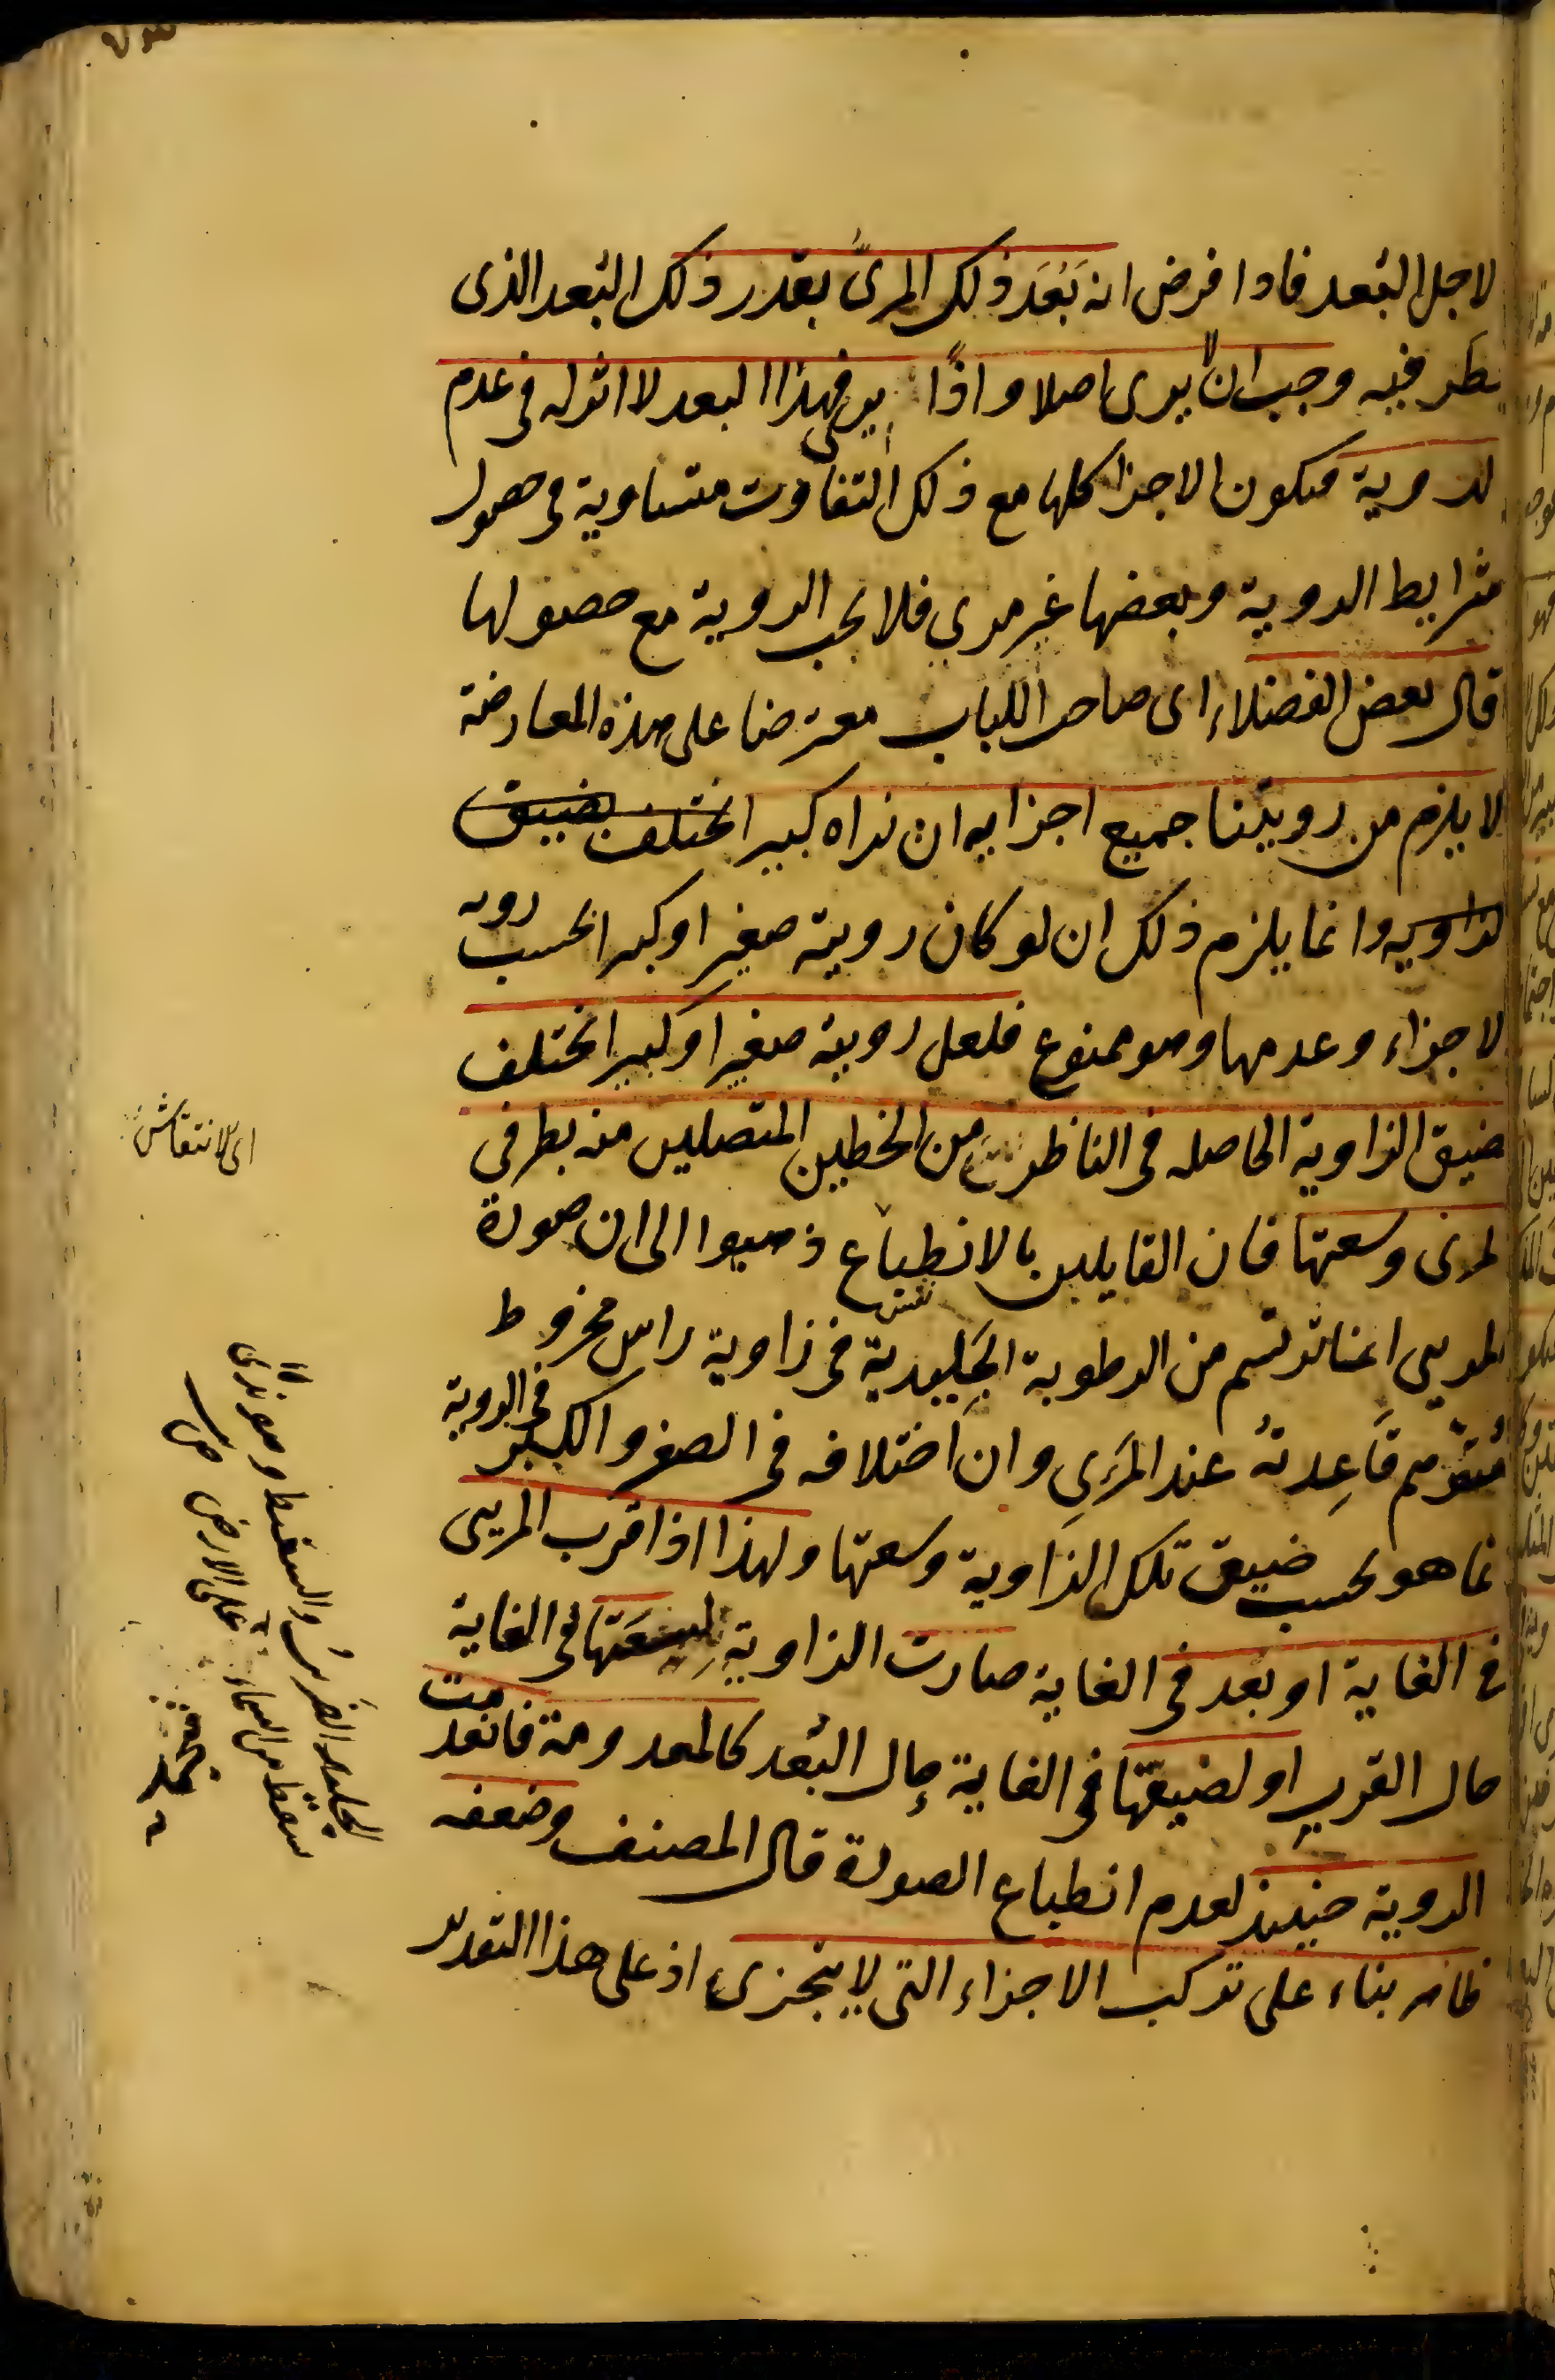 لاجل البُعد فاذا فرض انه بَعُدَ ذلك المرئي بقدر ذلك البُعد الذي
نظر فيه وجب ان لا يرى اصلا واذًا يرى فهذا البعد لا اثر له في عدم
لروية فتكون الاجزا كلها مع ذلك التفاوت متساوية في حصول
شرايط الروية وبعضها غير مرئي فلا يجب الروية مع حصولها
قال بعض الفضلاء اى صاحب اللباب معترضا على هذه المعارضة
لا يلزم من رويتنا جميع اجزايه ان نراه كبيرا مختلف بضيق
لزاويه وانما يلزم ذلك ان لو كان رويته صغيرا وكبيرا بحسب رويه
لاجزاء وعدمها وهو ممنوع فلعل رويته صغيرا وكبيرا تختلف
ضيق الزاوية الحاصله في الناظر من الخطين المتصلين منه بطرفي
لمرئى وسعتها فان القايلين بالانطباع ذهبوا الى ان صورة
لمرئي انما ترتسم من الرطوبة الجَليدية في زاوية راس مخروط
مُتوَهَّم قَاعِدتُهُ عند المرَئي وان اختلافه في الصغر والكبر في الروية
نما هو بحسب ضيق تلك الزاوية وسعتها ولهذا اذا قرب المريى
في الغاية او بَعُد في الغاية صارت الزاوية لِسَعَتها في الغاية
حال القرب او لضيقها في الغاية حال البُعد كالمعدومة فانعدمت
الروية حينئذ لعدم انطباع الصورة قال المصنف وضعفه
ظاهر بناء على تركب الاجزاء التي لا يتجزى اذ على هذا التقدير
اى الانتقاش
الجليد الضريب والسقيط وهو ندى
سقط من السماء على الارض ص